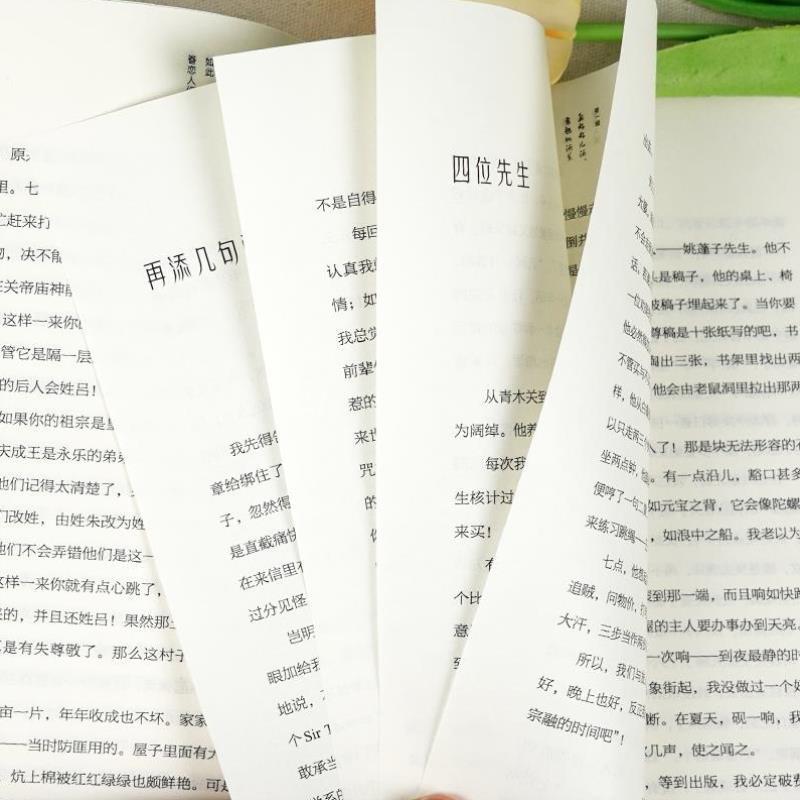 如此
眷恋人
原来
里。七
忙赶来打
物，决不能
在关帝庙神前
这样一来你
管它是隔一层
的后人会姓吕！
如果你的祖宗是
庆成王是永乐的弟弟
他们记得太清楚了，
门改姓，由姓朱改为姓
他们不会弄错他们是这一
这样一来你就有点心跳了，
来的，并且还姓吕！果然那
是有失尊敬了。那么这村子
亩一片，年年收成也不坏。家家
——当时防匪用的。屋子里面有
炕上棉被红红绿绿也颇鲜艳。可是
再添几句
我先得
章给绑住了
子，忽然得
是直截痛快
在来信里有
过分见怪
岂明
眼加给我
地说，
个Sir T
敢承当
不是自得
每回
认真我
情；如
我总觉
前辈
惹的
来也
咒
的
你
四位先生
从青木关到
为阔绰。他养
每次我
生核计过
来买！
有
个比
意
到
第一辑
慢慢
倒
大喝，
不会
话，
一位对
他必然
不管买与不
样，他从白
以只走两三个
坐两点钟，他
便哼了一句二
来练习跳绳——
七点，他想
追贼，问物价，打
大汗，三步当作两步
所以，我们与
好，晚上也好，反正
宗融的时间吧”！
——姚蓬子先生。他不
头是稿子，他的桌上、椅
被稿子埋起来了。当你要
尊稿是十张纸写的吧，书
掏出三张，书架里找出两
他会由老鼠洞里拉出那两
人了！那是块无法形容的石
。有一点沿儿，豁口甚多
如元宝之背，它会像陀螺
，如浪中之船。我老以为
滚到那一端，而且响如快跑
屋的主人要办事办到天亮。
一次响——到夜最静的时
象街起，我没做过一个好
断。在夏天，砚一响，我
几声，使之闻之。
，等到出版，我必定破费